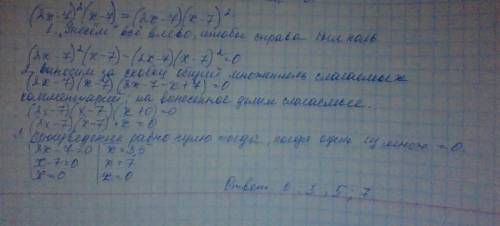 (2x-7)²(x-7) = (2x-7)(x-7)²
1. всё влево, чтобы справа был ноль
(2x-7)²(x-7)-(2x-7)(x-7)²=0
2. выносим за скобки общий множитель слагаемых
(2x-7)(x-7)(2x-7-x+7)=0
комментарий, на вынесенное делим слагаемые.
(2x-7)(x-7)(x+0)=0
(2x-7)(x-7)·x=0
3. Произведение равно нулю тогда, когда один из множ = 0.
2x-7=0 | x=3,5
x-7=0 | x=7
x=0 | x=0
Ответ: 0; 3,5; 7